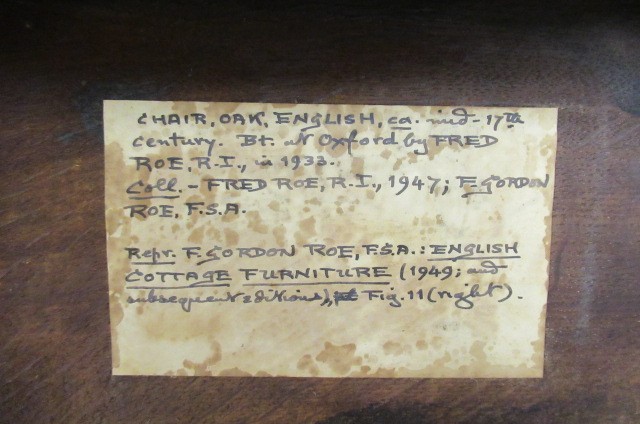 CHAIR, OAK, ENGLISH, ca. mid-17th
century. Bt. at Oxford by FRED
ROE, R.I., in 1933.
Coll. - FRED ROE, R.I., 1947; F. GORDON
ROE, F.S.A.
Repr. F. GORDON ROE, F.S.A.: ENGLISH
COTTAGE FURNITURE (1949; and
subsequent editions), Fig. 11 (right).